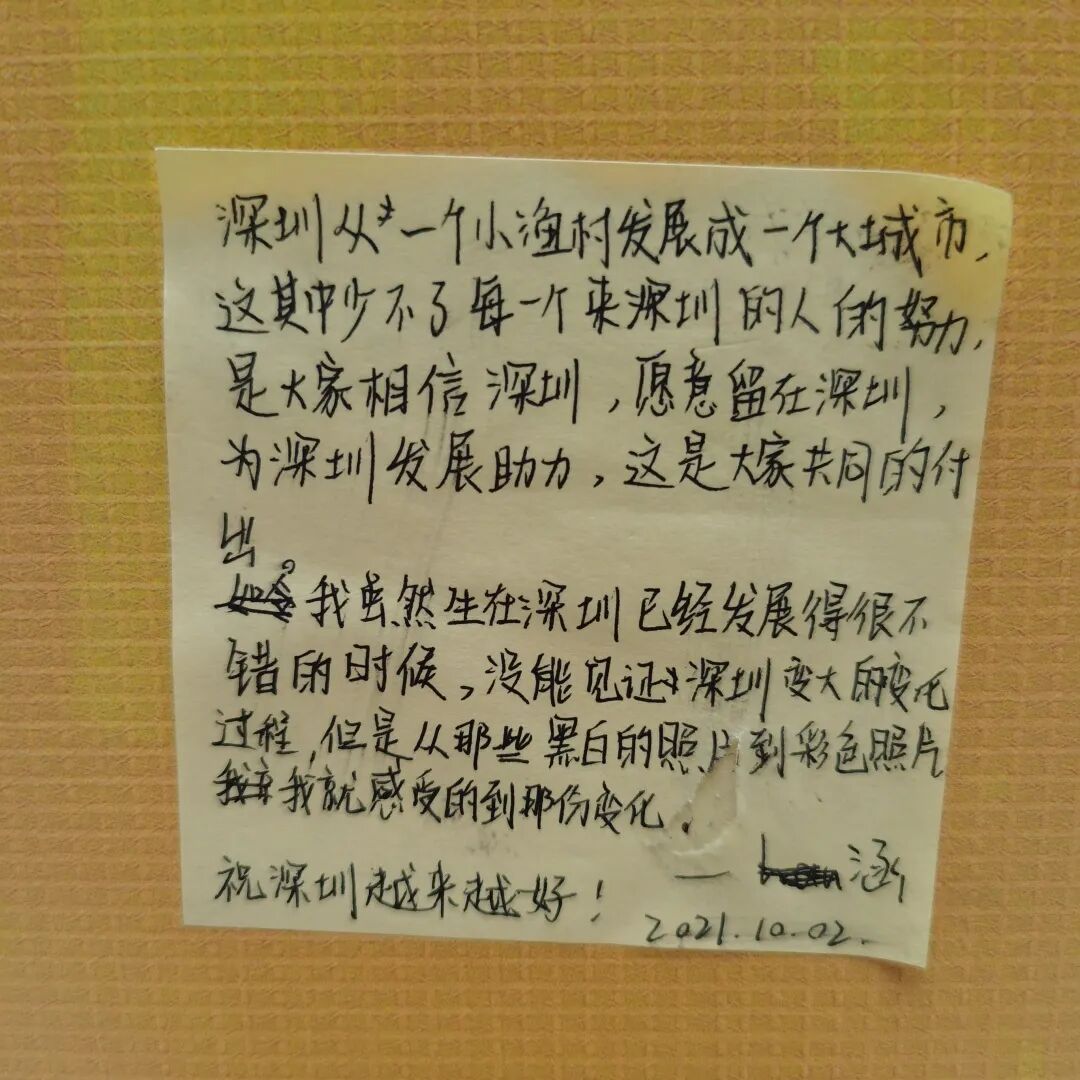 深圳从一个小渔村发展成一个大城市,
这其中少不了每一个来深圳的人们的努力,
是大家相信深圳,愿意留在深圳,
为深圳发展助力,这是大家共同的付
出。
我虽然生在深圳已经发展得很不
错的时候,没能见证深圳变大的变化
过程,但是从那些黑白的照片到彩色照片
我就感受的到那份变化.
— 涵
祝深圳越来越好!
2021.10.02.